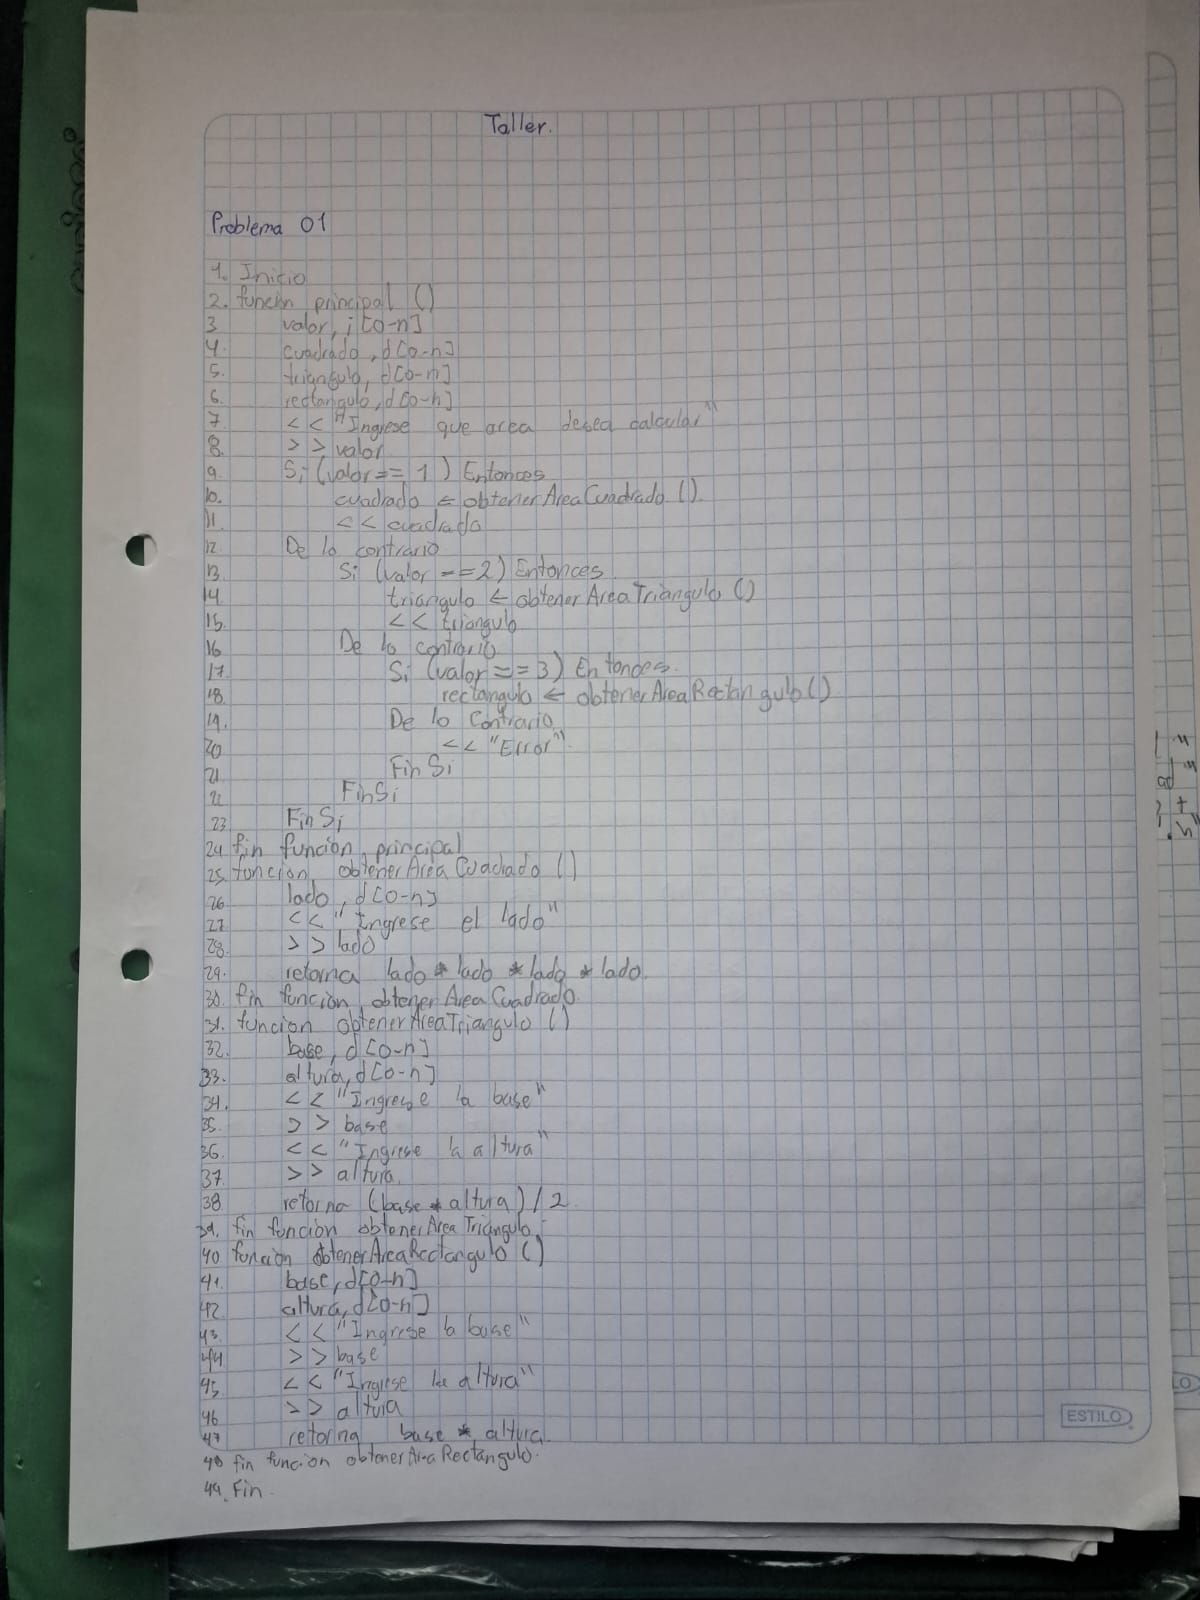 Taller.
Problema 01
1. Inicio
2. función principal ()
3 valor, i [0-n]
4. cuadrado, d[0-n]
5. triangulo, d[0-n]
6. rectangulo, d[0-n]
7. << "Ingrese que area desea calcular"
8. >> valor
9. Si (valor == 1) Entonces
10. cuadrado ← obtenerAreaCuadrado ().
11. << cuadrado
12. De lo contrario
13. Si (valor == 2) Entonces
14 triangulo ← obtenerAreaTriangulo ()
15. << triangulo
16 De lo contrario
17. Si (valor == 3) Entonces.
18. rectangulo ← obtenerAreaRectangulo ()
19. De lo Contrario
20 << "Error"
21 Fin Si
22 Fin Si
23 Fin Si
24 fin función principal
25. funcion obtenerArea Cuadrado ()
26 lado, d[0-n]
27 << "Ingrese el lado"
28. >> lado
29. retorna lado * lado * lado * lado.
30. fin función obtenerArea Cuadrado.
31. funcion obtenerAreaTriangulo ()
32. base, d[0-n]
33. altura, d[0-n]
34. << "Ingrese la base"
35. >> base
36. << "Ingrese la altura"
37. >> altura.
38 retorna (base * altura) / 2
39. fin función obtenerArea Triángulo.
40 función obtenerAreaRectangulo ()
41. base, d[0-n]
42 altura, d[0-n]
43. << "Ingrese la base"
44 >> base
45 << "Ingrese la altura"
46 >> altura
47 retorna base * altura
48 fin función obtenerAreaRectangulo.
49. Fin.
ESTILO